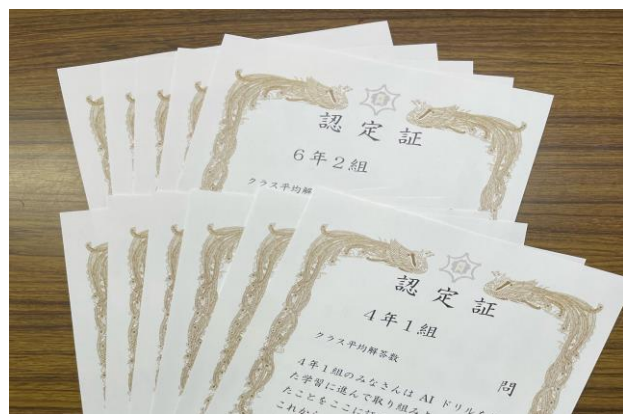 認定証
6年2組
クラス平均解
認定証
4年1組
クラス平均解答数
問
4年1組のみなさんは AI ドリル
た学習に進んで取り組み
たことをここに
これか